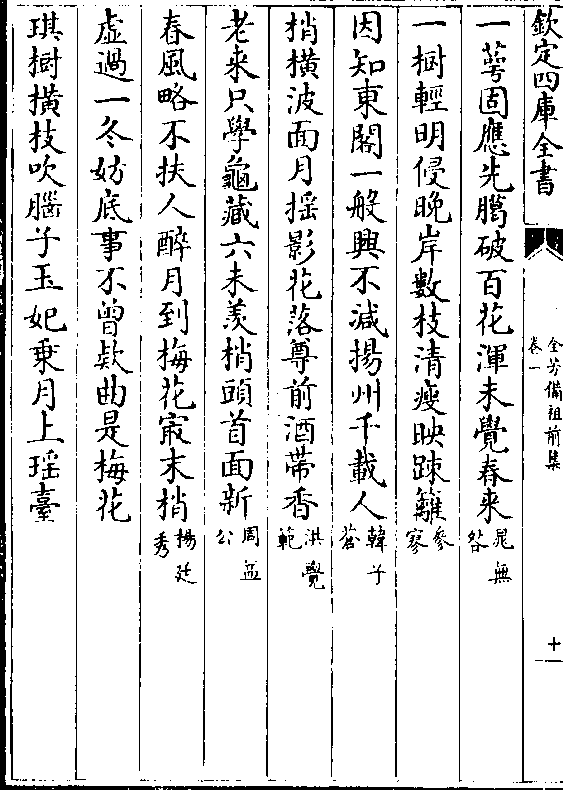 欽定四庫全書
全芳備祖前集
卷一
十
一萼固應先臈破百花渾未覺春来晁無咎
一樹輕明侵晚岸數枝清瘦映踈籬參寥
因知東閣一般興不減揚州千載人韓子蒼
梢橫波面月揺影花落尊前酒帶香洪覺範
老来只學龜藏六未羡梢頭首面新周益公
春風略不扶人醉月到梅花㝡末梢楊廷秀
虚過一冬妨底事不曾欵曲是梅花
琪樹橫枝吹腦子玉妃乗月上瑶臺